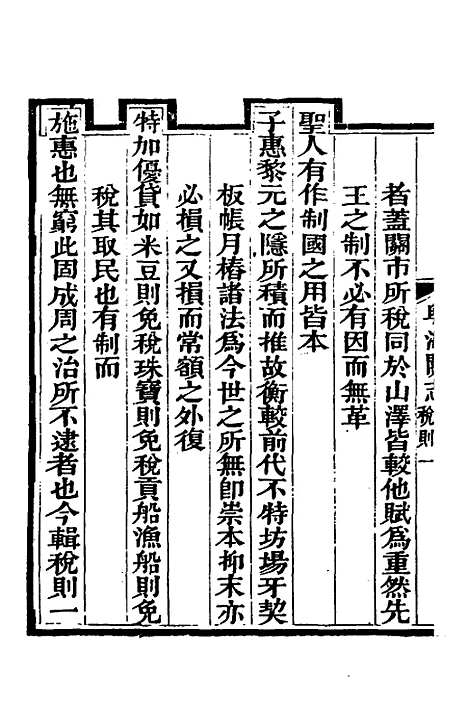 粵海關志 稅則一
者蓋關市所稅同於山澤皆較他賦爲重然先
王之制不必有因而無革
聖人有作制國之用皆本
子惠黎元之隱所積而推故衡較前代不特坊場牙契
板帳月樁諸法爲今世之所無卽崇本抑末亦
必損之又損而常額之外復
特加優貸如米豆則免稅珠寶則免稅貢船漁船則免
稅其取民也有制而
施惠也無窮此固成周之治所不逮者也今輯稅則一